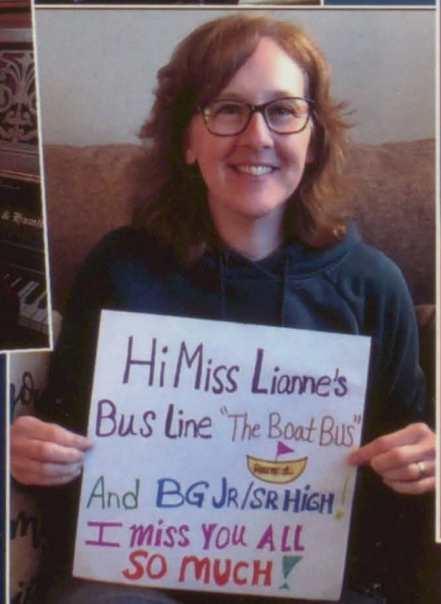 Hi Miss Lianne's
Bus Line "The Boat Bus"
And BG JR/SR HIGH!
I miss YOU ALL
SO MUCH!